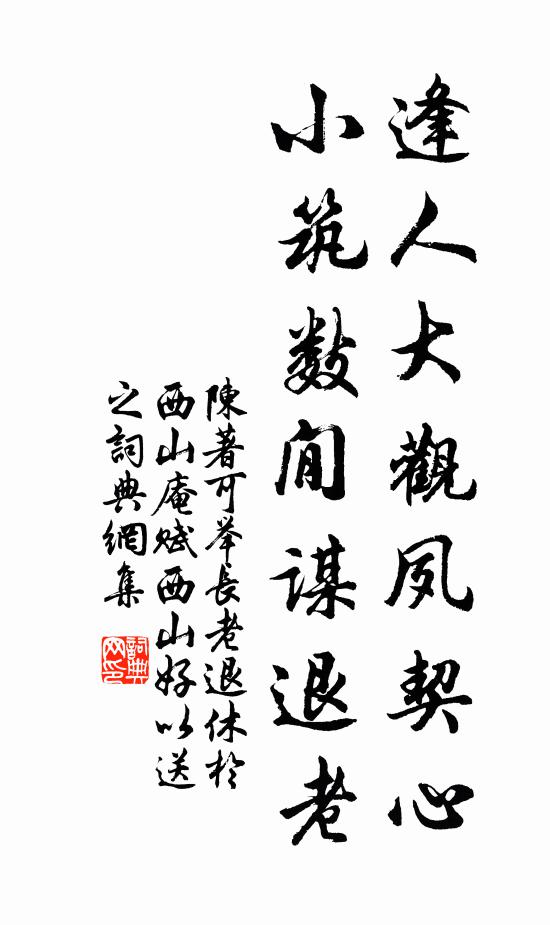 逢人大觀夙契心
小筑数間謀退老
陳著可举長老退休於
西山庵賦西山好以送
之詞典網集
詞典网印